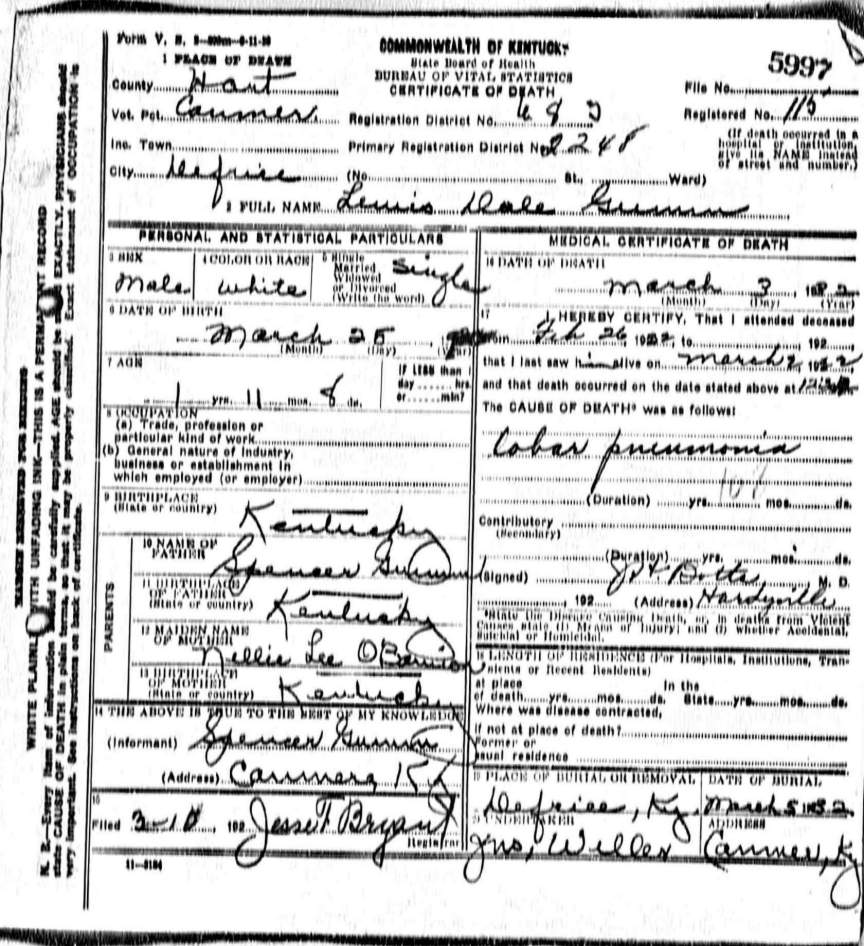 Form V. S.
COMMONWEALTH OF KENTUCKY
State Board of Health
BUREAU OF VITAL STATISTICS
CERTIFICATE OF DEATH
5997
1 PLACE OF DEATH
County Hart
Vot. Pct. Canmer
Inc. Town
City Defries
File No.
Registered No. 115
Registration District No.
Primary Registration District No. 2248
(If death occurred in a hospital or institution, give its NAME instead of street and number.)
(No. St., Ward)
2 FULL NAME Lewis Dale Gumm
PERSONAL AND STATISTICAL PARTICULARS
3 SEX
Male
4 COLOR OR RACE
white
5 Single
Married
Widowed
or Divorced
(Write the word)
Single
6 DATE OF BIRTH
March 25
(Month) (Day) (Year)
7 AGE
1 yrs. 11 mos. 8 ds.
If LESS than 1
day hrs.
or min?
8 OCCUPATION
(a) Trade, profession or
particular kind of work
(b) General nature of industry,
business or establishment in
which employed (or employer)
9 BIRTHPLACE
(State or country)
Kentucky
PARENTS
10 NAME OF
FATHER
Spencer Gumm
11 BIRTHPLACE
OF FATHER
(State or country)
Kentucky
12 MAIDEN NAME
OF MOTHER
Nellie Lee
13 BIRTHPLACE
OF MOTHER
(State or country)
Kentucky
14 THE ABOVE IS TRUE TO THE BEST OF MY KNOWLEDGE
(Informant) Spencer Gumm
(Address) Canmer, Ky
15
Filed 3-10, 192 Jesse F Bryant
Registrar
11-3184
MEDICAL CERTIFICATE OF DEATH
16 DATE OF DEATH
March 3
(Month) (Day) (Year)
17
I HEREBY CERTIFY, That I attended deceased
from Feb 26 to , 192
that I last saw him alive on March 2
and that death occurred on the date stated above at
The CAUSE OF DEATH* was as follows:
Lobar pneumonia
(Duration) yrs. mos. ds.
Contributory
(Secondary)
(Duration) yrs. mos. ds.
(Signed) M. D.
, 192 (Address) Hardyville
*State the Disease Causing Death, or, in deaths from Violent
Causes, state (1) Means of Injury; and (2) whether Accidental,
Suicidal or Homicidal.
18 LENGTH OF RESIDENCE (For Hospitals, Institutions, Tran-
sients or Recent Residents)
At place In the
of death yrs. mos. ds. State yrs. mos. ds.
Where was disease contracted,
if not at place of death?
Former or
usual residence
19 PLACE OF BURIAL OR REMOVAL
Defries, Ky.
DATE OF BURIAL
March 5
20 UNDERTAKER
Jno. Willer
ADDRESS
Canmer, Ky
MARGIN RESERVED FOR BINDING
WRITE PLAINLY WITH UNFADING INK—THIS IS A PERMANENT RECORD
N. B.—Every item of information should be carefully supplied. AGE should be stated EXACTLY. PHYSICIANS should
state CAUSE OF DEATH in plain terms, so that it may be properly classified. Exact statement of OCCUPATION is
very important. See instructions on back of certificate.